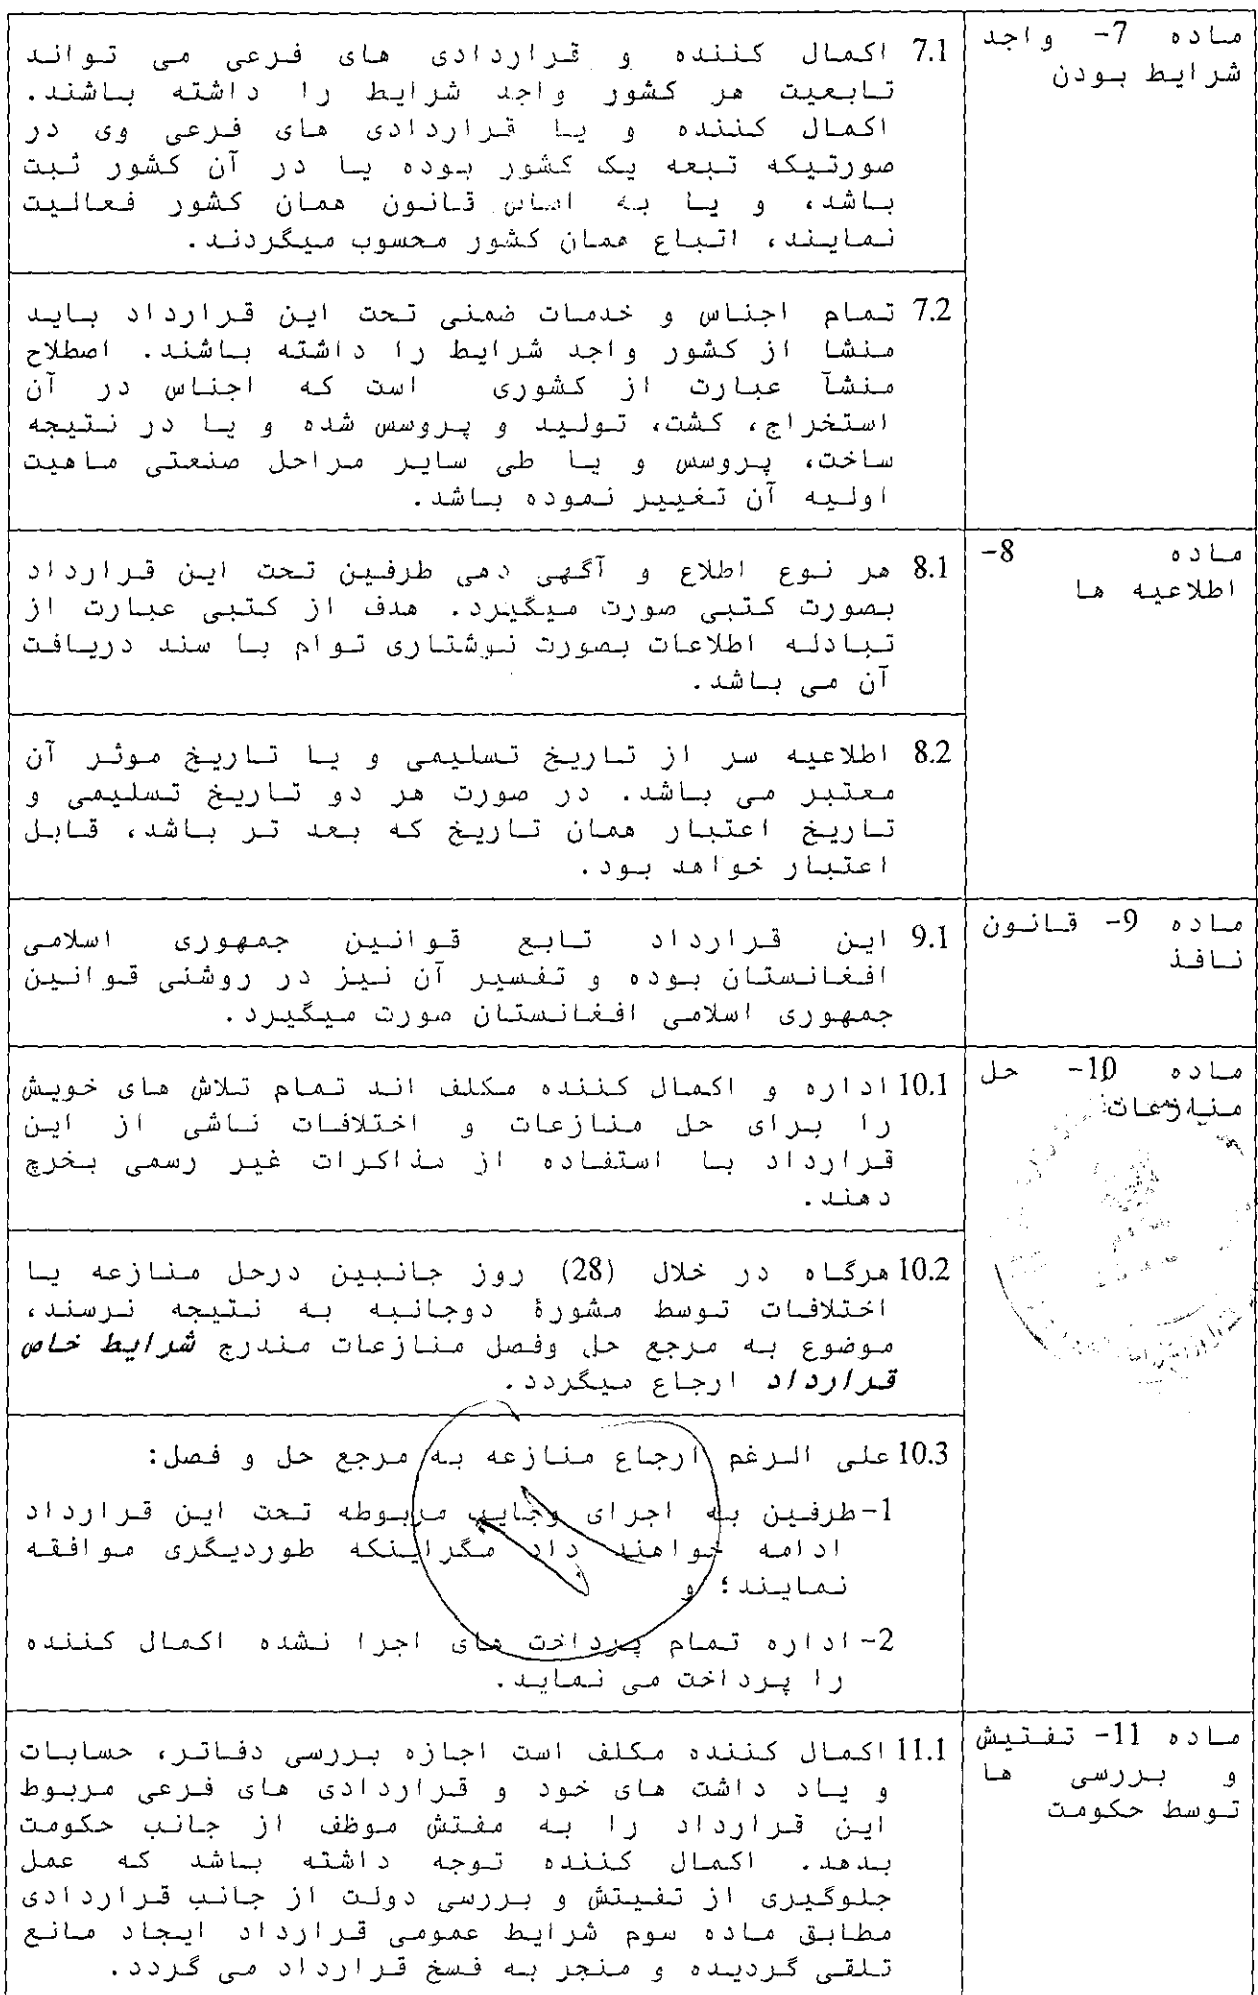 ماده 7- واجد
شرایط بودن
7.1 اکمال کننده و قراردادی های فرعی می تواند
تابعیت هر کشور واجد شرایط را داشته باشند.
اکمال کننده و یا قراردادی های فرعی وی در
صورتیکه تبعه یک کشور بوده یا در آن کشور ثبت
باشد، و یا به اساس قانون همان کشور فعالیت
نمایند، اتباع همان کشور محسوب میگردند.
7.2 تمام اجناس و خدمات ضمنی تحت این قرارداد باید
منشا از کشور واجد شرایط را داشته باشند. اصطلاح
منشآ عبارت از کشوری است که اجناس در آن
استخراج، کشت، تولید و پروسس شده و یا در نتیجه
ساخت، پروسس و یا طی سایر مراحل صنعتی ماهیت
اولیه آن تغییر نموده باشد.
ماده 8-
اطلاعیه ها
8.1 هر نوع اطلاع و آگهی دهی طرفین تحت این قرارداد
بصورت کتبی صورت میگیرد. هدف از کتبی عبارت از
تبادله اطلاعات بصورت نوشتاری توام با سند دریافت
آن می باشد.
8.2 اطلاعیه سر از تاریخ تسلیمی و یا تاریخ موثر آن
معتبر می باشد. در صورت هر دو تاریخ تسلیمی و
تاریخ اعتبار همان تاریخ که بعد تر باشد، قابل
اعتبار خواهد بود.
ماده 9- قانون
نافذ
9.1 این قرارداد تابع قوانین جمهوری اسلامی
افغانستان بوده و تفسیر آن نیز در روشنی قوانین
جمهوری اسلامی افغانستان صورت میگیرد.
ماده 10- حل
منازعات
10.1 اداره و اکمال کننده مکلف اند تمام تلاش های خویش
را برای حل منازعات و اختلافات ناشی از این
قرارداد با استفاده از مذاکرات غیر رسمی بخرچ
دهند.
10.2 هرگاه در خلال (28) روز جانبین درحل منازعه یا
اختلافات توسط مشورۀ دوجانبه به نتیجه نرسند،
موضوع به مرجع حل وفصل منازعات مندرج شرایط خاص
قرارداد ارجاع میگردد.
10.3 علی الرغم ارجاع منازعه به مرجع حل و فصل:
1- طرفین به اجرای وجایب مربوطه تحت این قرارداد
ادامه خواهند داد مگراینکه طوردیگری موافقه
نمایند؛ و
2- اداره تمام پرداخت های اجرا نشده اکمال کننده
را پرداخت می نماید.
ماده 11- تفتیش
و بررسی ها
توسط حکومت
11.1 اکمال کننده مکلف است اجازه بررسی دفاتر، حسابات
و یاد داشت های خود و قراردادی های فرعی مربوط
این قرارداد را به مفتش موظف از جانب حکومت
بدهد. اکمال کننده توجه داشته باشد که عمل
جلوگیری از تفیتش و بررسی دولت از جانب قراردادی
مطابق ماده سوم شرایط عمومی قرارداد ایجاد مانع
تلقی گردیده و منجر به فسخ قرارداد می گردد.